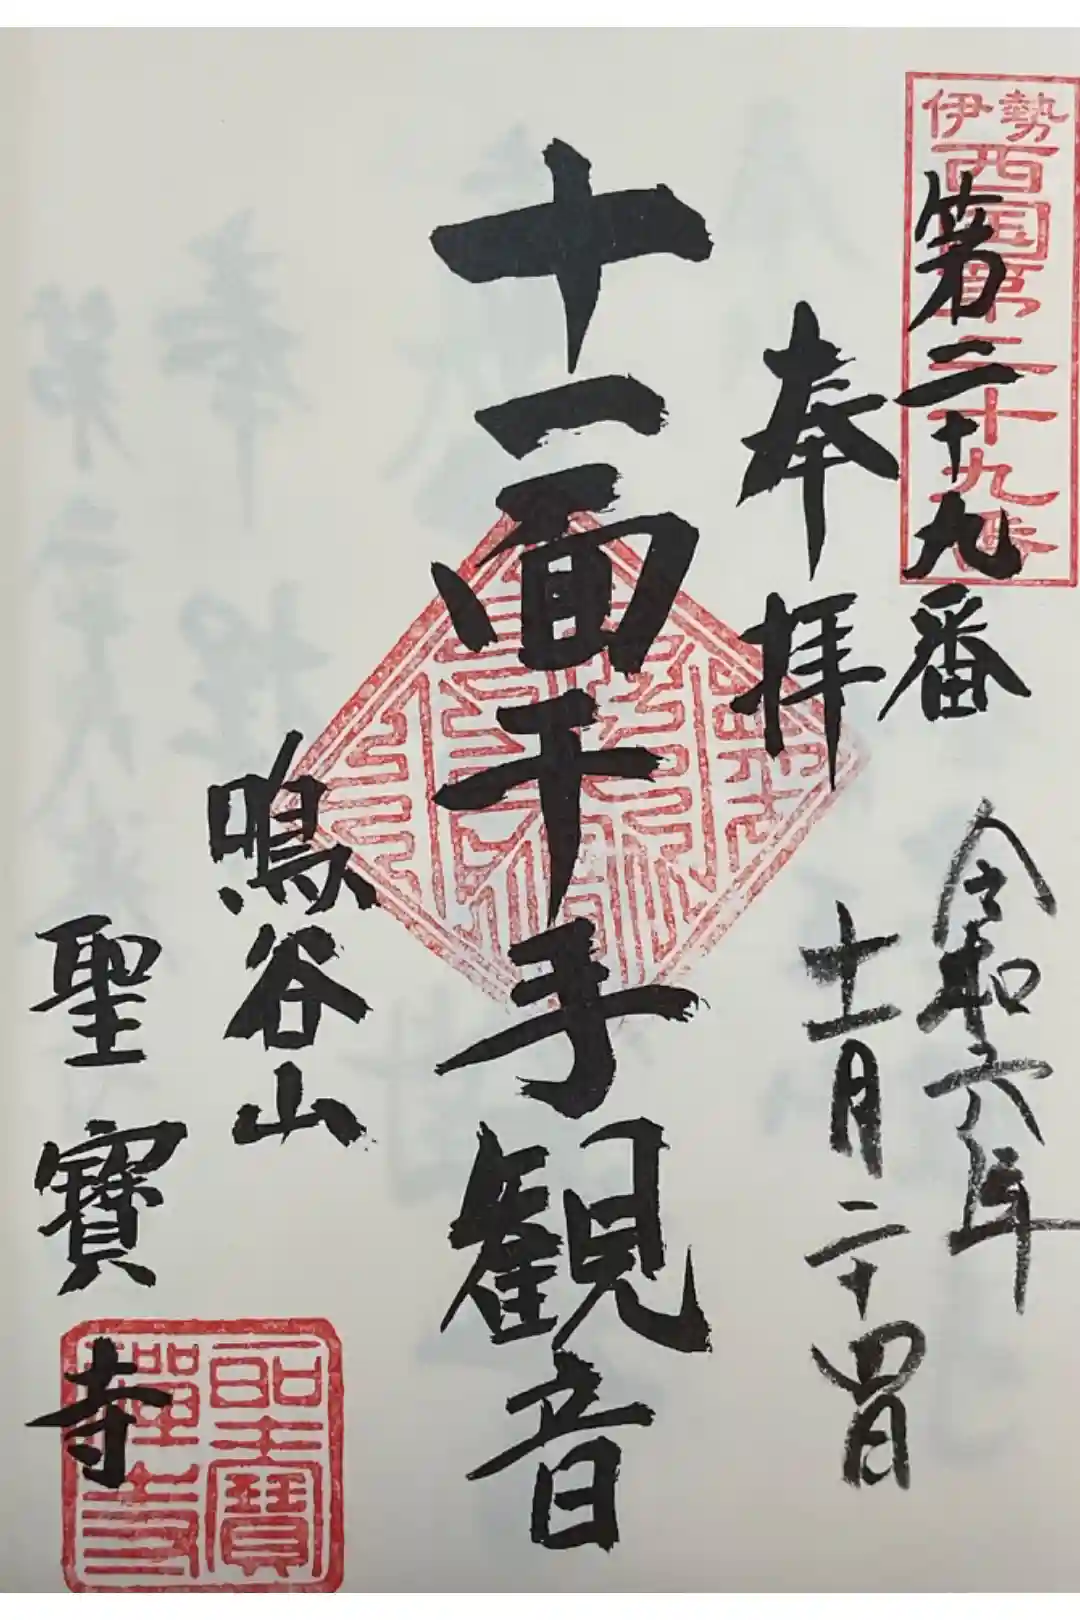 伊勢
西国第二十九番
第二十九番
奉拝
令和六年
十一月二十四日
十一面千手観音
鳴谷山
聖寳寺
聖寳
禅寺